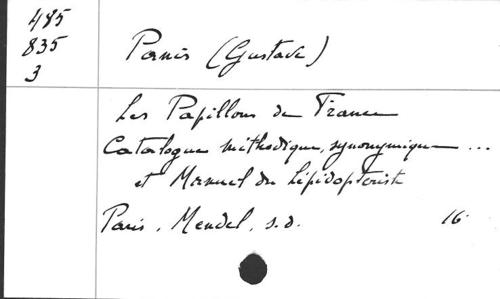 485
835
3
Panis (Gustave)
Les Papillons de France
Catalogue méthodique, synonymique ...
et Manuel du Lépidoptériste
Paris, Mendel, s.d. 16